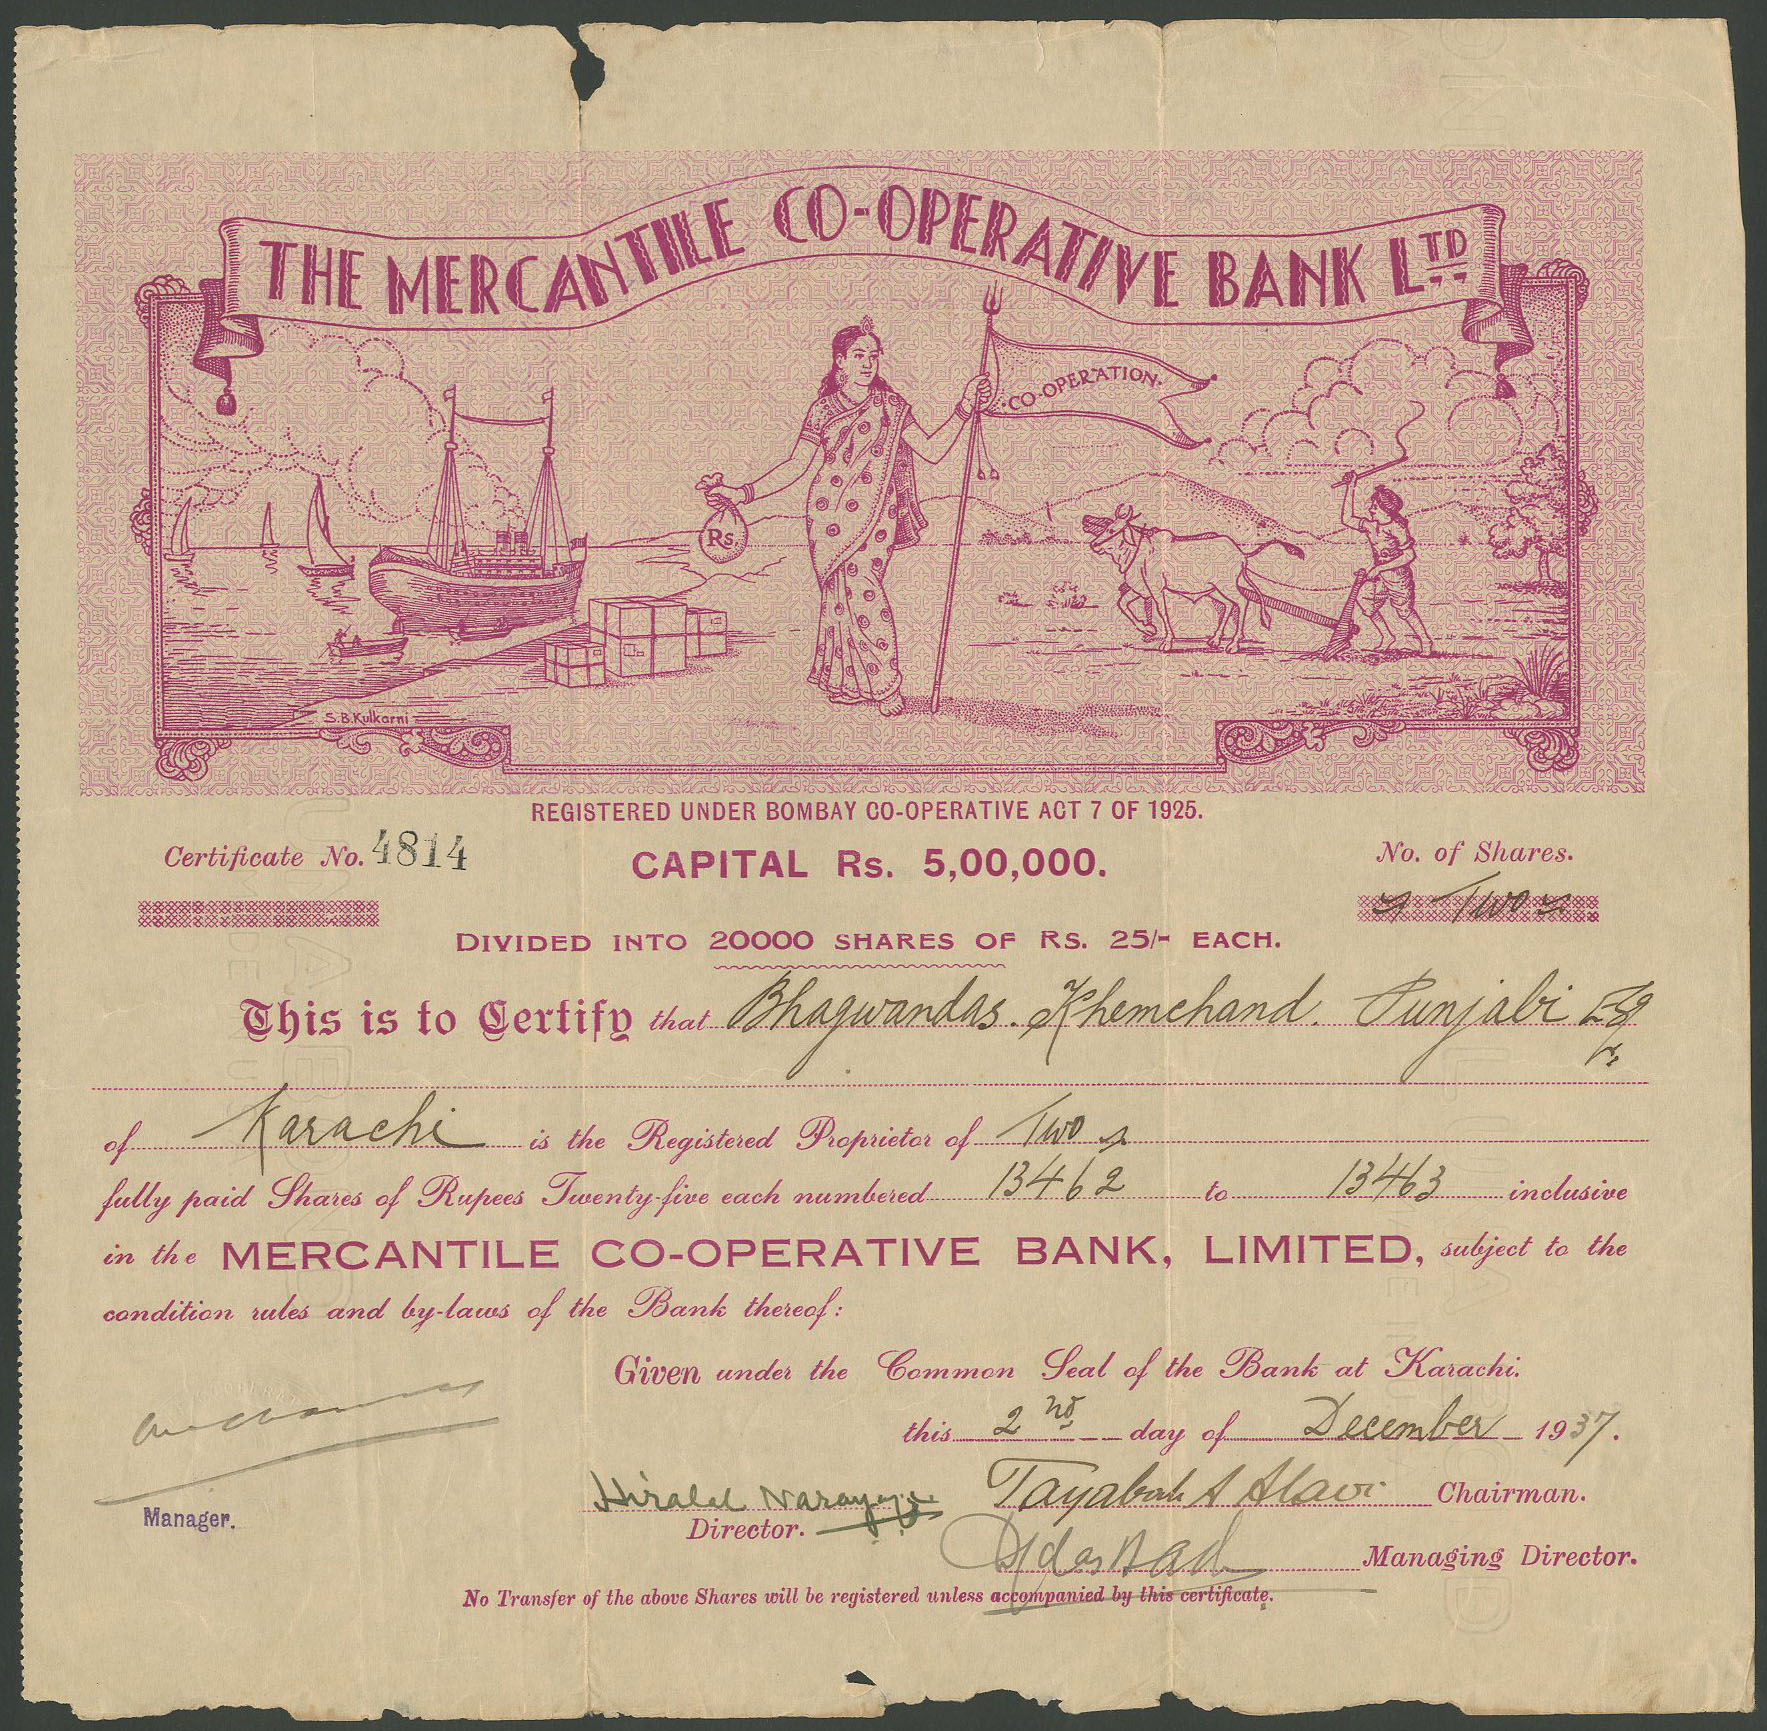 THE MERCANTILE CO-OPERATIVE BANK LTD
CO-OPERATION.
Rs.
S.B.Kulkarni
REGISTERED UNDER BOMBAY CO-OPERATIVE ACT 7 OF 1925.
Certificate No. 4814
CAPITAL Rs. 5,00,000.
No. of Shares.
Two
DIVIDED INTO 20000 SHARES OF RS. 25/- EACH.
This is to Certify that Bhagwandas. Khemchand. Punjabi Esqr.
of Karachi is the Registered Proprietor of Two
fully paid Shares of Rupees Twenty-five each numbered 13462 to 13463 inclusive
in the MERCANTILE CO-OPERATIVE BANK, LIMITED, subject to the
condition rules and by-laws of the Bank thereof:
Given under the Common Seal of the Bank at Karachi.
this 2nd day of December 1937.
Hiralal Tayabali A Alavi Chairman.
Manager.
Director.
Managing Director.
No Transfer of the above Shares will be registered unless accompanied by this certificate.